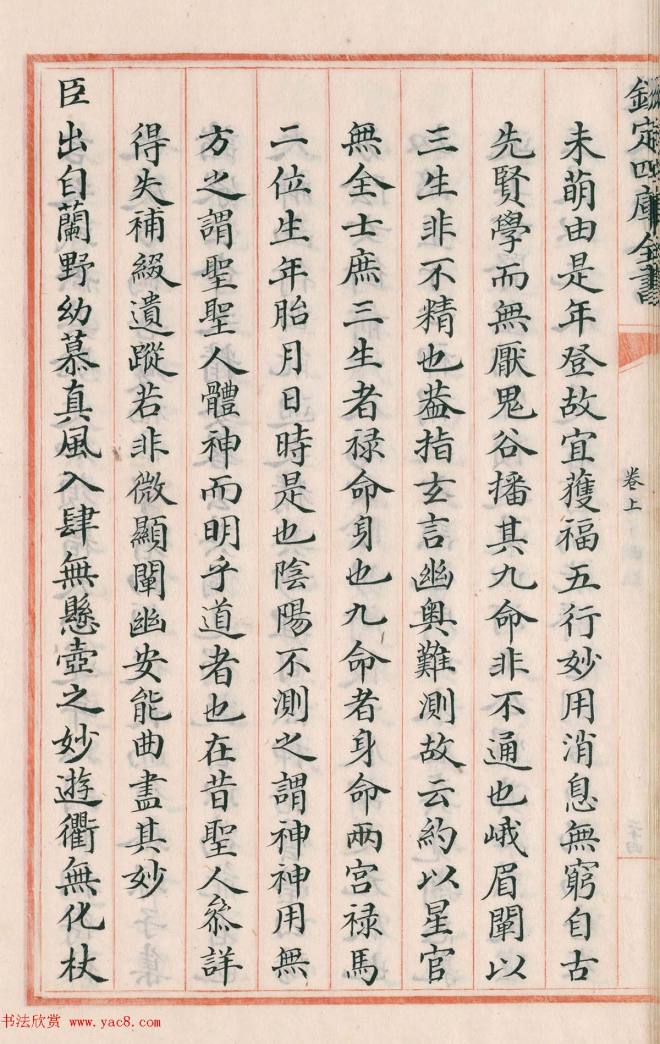 欽定四庫全書
卷上
未萌由是年登故宜獲福五行妙用消息無窮自古
先賢學而無厭鬼谷播其九命非不通也峨眉闡以
三生非不精也葢指玄言幽奧難測故云約以星官
無全士庶三生者禄命身也九命者身命兩宮禄馬
二位生年胎月日時是也陰陽不測之謂神神用無
方之謂聖聖人體神而明乎道者也在昔聖人叅詳
得失補綴遺蹤若非微顯闡幽安能曲盡其妙
臣出自蘭野幼慕真風入肆無懸壺之妙遊衢無化杖
书法欣赏 www.yac8.com